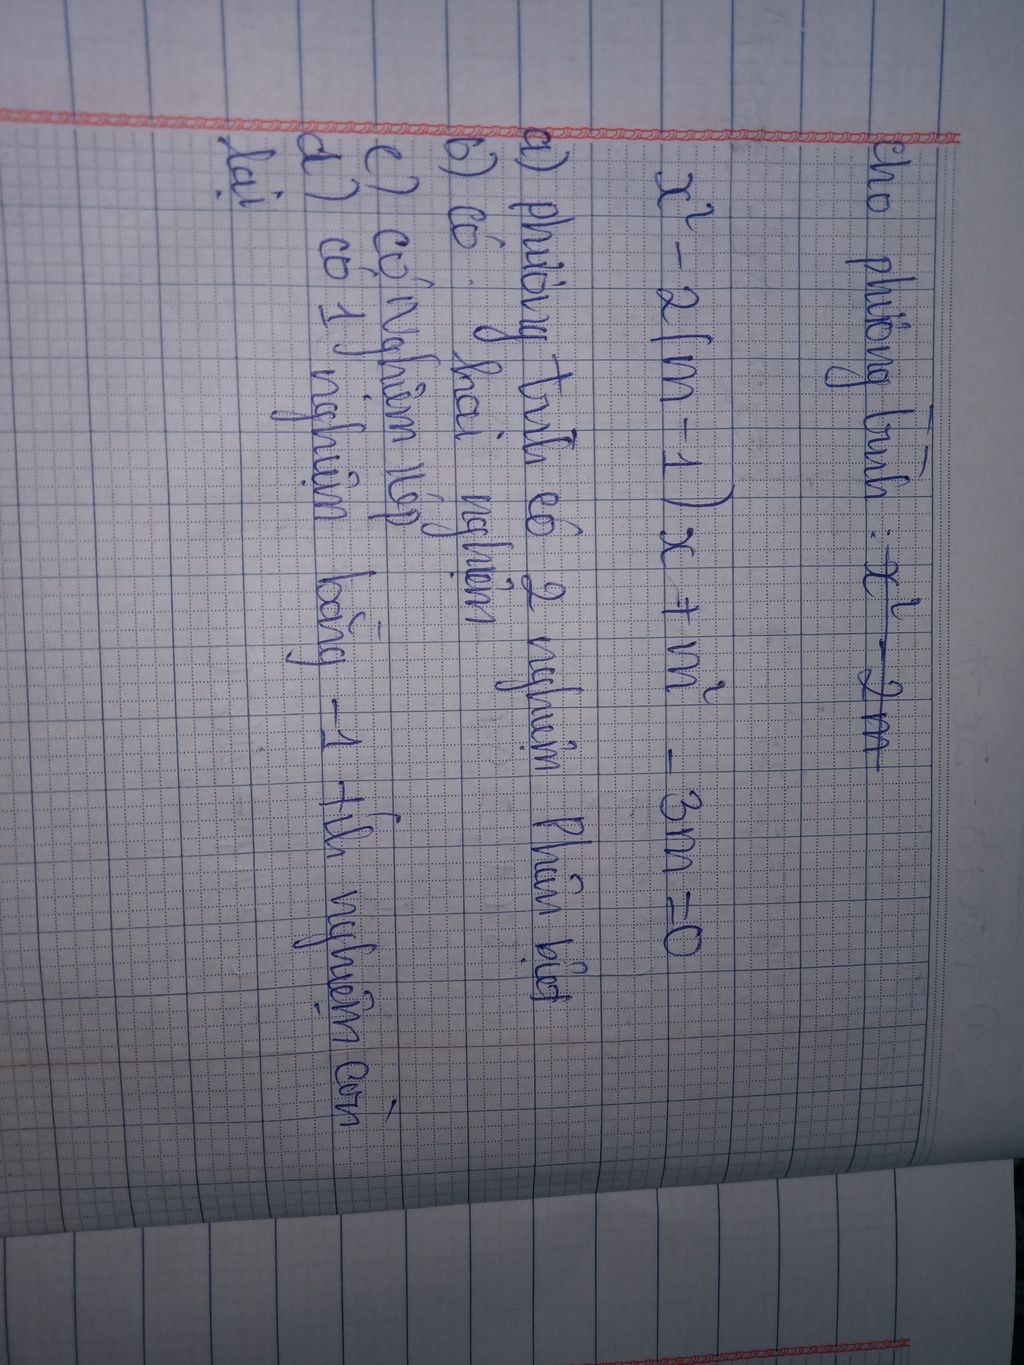 Cho phương trình : x² - 2m
x² - 2(m - 1)x + m² - 3m = 0
a) phương trình có 2 nghiệm Phân biệt
b) có hai nghiệm
c) có Nghiệm kép
d) có 1 nghiệm bằng -1 tính nghiệm còn
lại